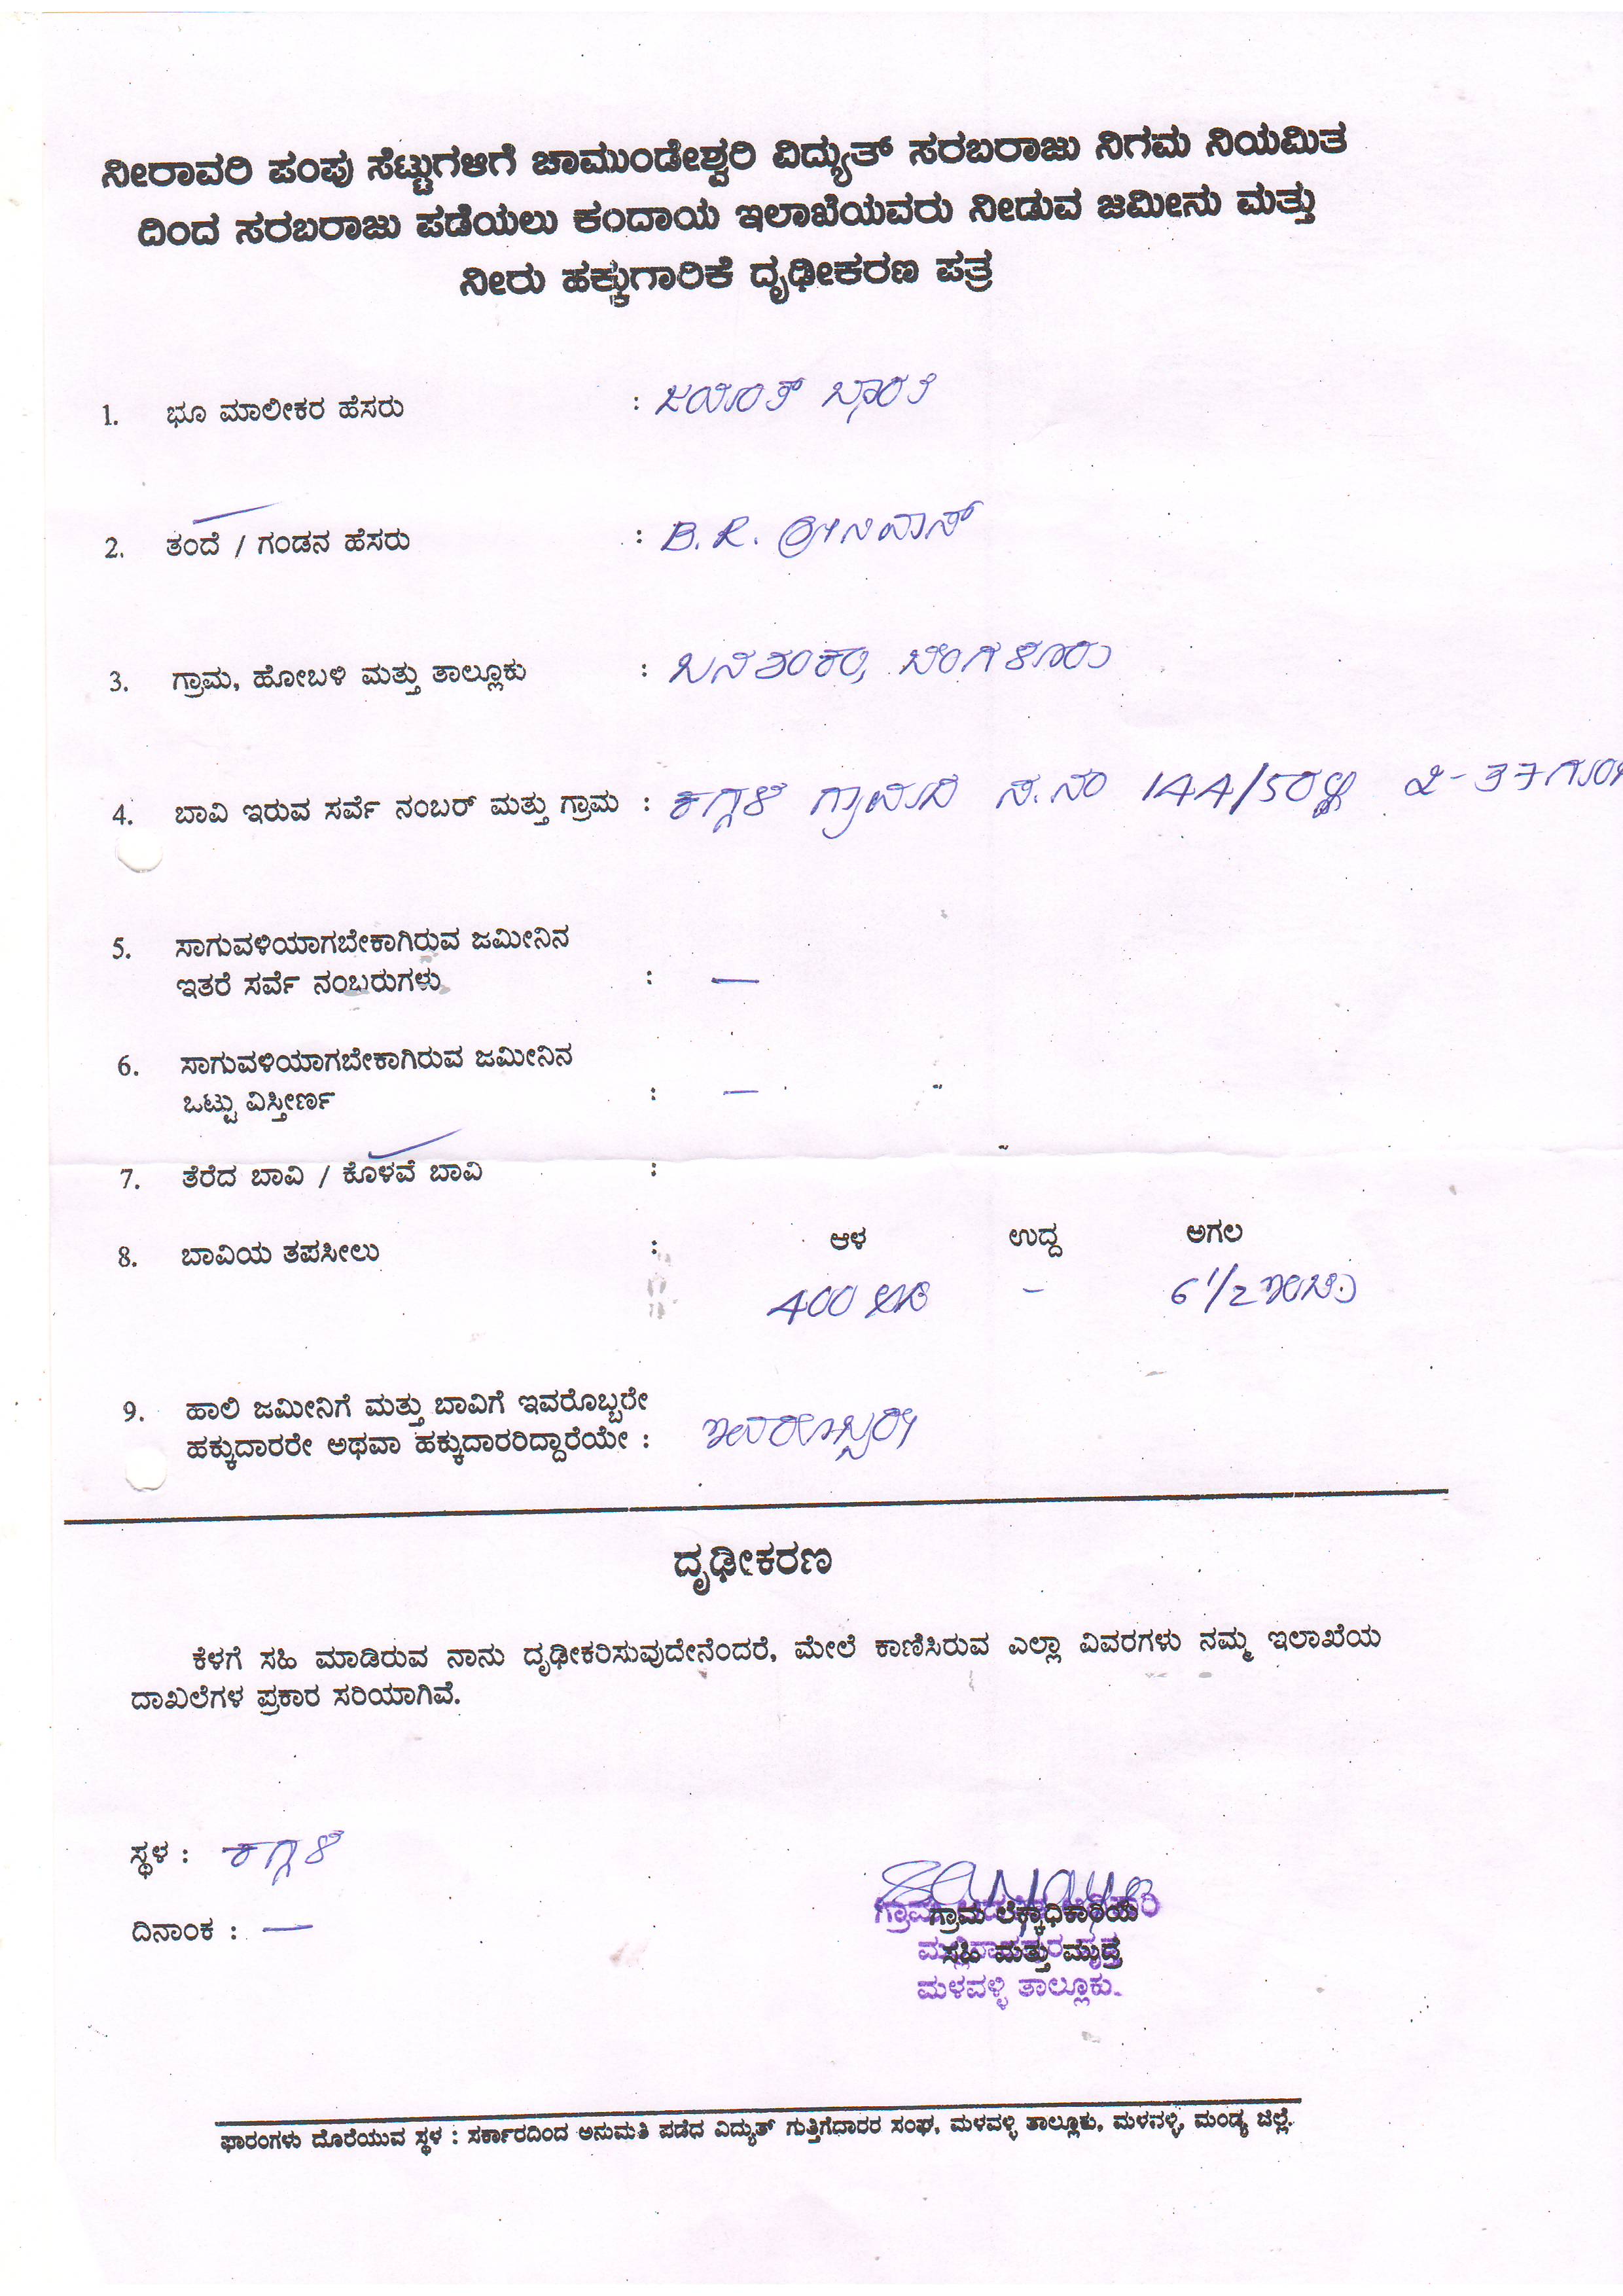 ನೀರಾವರಿ ಪಂಪು ಸೆಟ್ಟುಗಳಿಗೆ ಚಾಮುಂಡೇಶ್ವರಿ ವಿದ್ಯುತ್ ಸರಬರಾಜು ನಿಗಮ ನಿಯಮಿತ
ದಿಂದ ಸರಬರಾಜು ಪಡೆಯಲು ಕಂದಾಯ ಇಲಾಖೆಯವರು ನೀಡುವ ಜಮೀನು ಮತ್ತು
ನೀರು ಹಕ್ಕುಗಾರಿಕೆ ದೃಢೀಕರಣ ಪತ್ರ
1. ಭೂ ಮಾಲೀಕರ ಹೆಸರು : ಜಯಂತ್
2. ತಂದೆ / ಗಂಡನ ಹೆಸರು : B.R. ಶ್ರೀನಿವಾಸ್
3. ಗ್ರಾಮ, ಹೋಬಳಿ ಮತ್ತು ತಾಲ್ಲೂಕು : ಬನಶಂಕರಿ, ಬೆಂಗಳೂರು
4. ಬಾವಿ ಇರುವ ಸರ್ವೆ ನಂಬರ್ ಮತ್ತು ಗ್ರಾಮ : ಕಗ್ಗಳಿ ಗ್ರಾಮದ ಸ.ನಂ 144/50ರಲ್ಲಿ 2-37ಗುಂಟೆ
5. ಸಾಗುವಳಿಯಾಗಬೇಕಾಗಿರುವ ಜಮೀನಿನ
ಇತರೆ ಸರ್ವೆ ನಂಬರುಗಳು : —
6. ಸಾಗುವಳಿಯಾಗಬೇಕಾಗಿರುವ ಜಮೀನಿನ
ಒಟ್ಟು ವಿಸ್ತೀರ್ಣ : —
7. ತೆರೆದ ಬಾವಿ / ಕೊಳವೆ ಬಾವಿ :
8. ಬಾವಿಯ ತಪಸೀಲು : ಆಳ ಉದ್ದ ಅಗಲ
400 ಅಡಿ - 6 1/2 ಇಂಚು
9. ಹಾಲಿ ಜಮೀನಿಗೆ ಮತ್ತು ಬಾವಿಗೆ ಇವರೊಬ್ಬರೇ
ಹಕ್ಕುದಾರರೇ ಅಥವಾ ಹಕ್ಕುದಾರರಿದ್ದಾರೆಯೇ : ಇವರೊಬ್ಬರೇ
ದೃಢೀಕರಣ
ಕೆಳಗೆ ಸಹಿ ಮಾಡಿರುವ ನಾನು ದೃಢೀಕರಿಸುವುದೇನೆಂದರೆ, ಮೇಲೆ ಕಾಣಿಸಿರುವ ಎಲ್ಲಾ ವಿವರಗಳು ನಮ್ಮ ಇಲಾಖೆಯ
ದಾಖಲೆಗಳ ಪ್ರಕಾರ ಸರಿಯಾಗಿವೆ.
ಸ್ಥಳ : ಕಗ್ಗಳಿ
ದಿನಾಂಕ : —
ಗ್ರಾಮ ಲೆಕ್ಕಾಧಿಕಾರಿಯ
ಸಹಿ ಮತ್ತು ಮುದ್ರೆ
ಮಳವಳ್ಳಿ ತಾಲ್ಲೂಕು.
ಫಾರಂಗಳು ದೊರೆಯುವ ಸ್ಥಳ : ಸರ್ಕಾರದಿಂದ ಅನುಮತಿ ಪಡೆದ ವಿದ್ಯುತ್ ಗುತ್ತಿಗೆದಾರರ ಸಂಘ, ಮಳವಳ್ಳಿ ತಾಲ್ಲೂಕು, ಮಳವಳ್ಳಿ, ಮಂಡ್ಯ ಜಿಲ್ಲೆ.